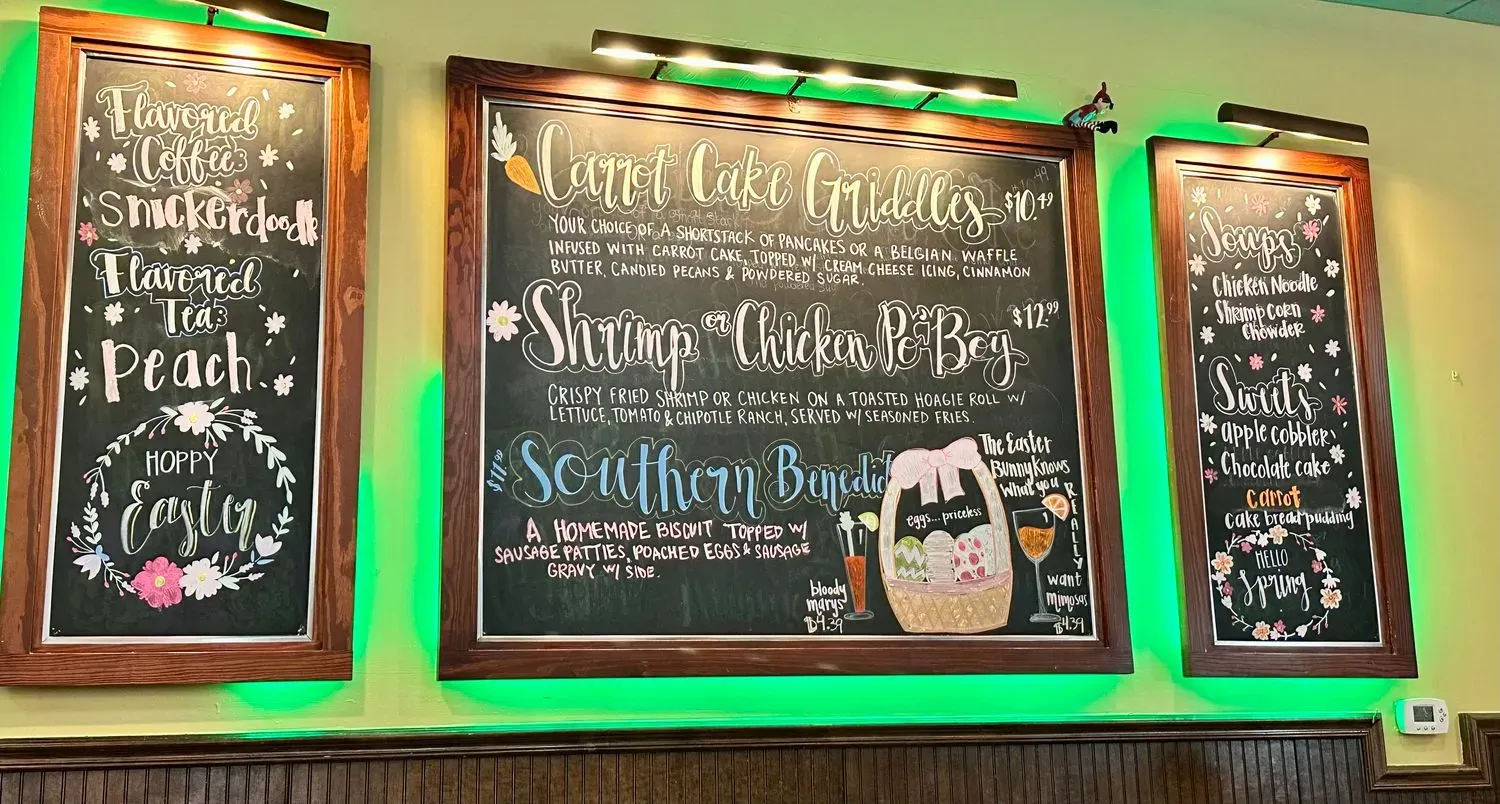 Flavored
Coffee:
Snickerdoodle
Flavored
Tea:
Peach
HOPPY
Easter
Carrot Cake Griddles $10.49
YOUR CHOICE OF A SHORTSTACK OF PANCAKES OR A BELGIAN WAFFLE
INFUSED WITH CARROT CAKE, TOPPED W/ CREAM CHEESE ICING, CINNAMON
BUTTER, CANDIED PECANS & POWDERED SUGAR.
Shrimp or Chicken Po'Boy $12.99
CRISPY FRIED SHRIMP OR CHICKEN ON A TOASTED HOAGIE ROLL W/
LETTUCE, TOMATO & CHIPOTLE RANCH, SERVED W/ SEASONED FRIES.
$11.99 Southern Benedict
A HOMEMADE BISCUIT TOPPED W/
SAUSAGE PATTIES, POACHED EGGS & SAUSAGE
GRAVY W/ SIDE.
bloody
marys
$4.39
eggs... priceless
The Easter
Bunny Knows
What you
REALLY
want
mimosas
$4.39
Soups
Chicken Noodle
Shrimp Corn
Chowder
Sweets
apple cobbler
Chocolate cake
carrot
cake bread pudding
HELLO
Spring